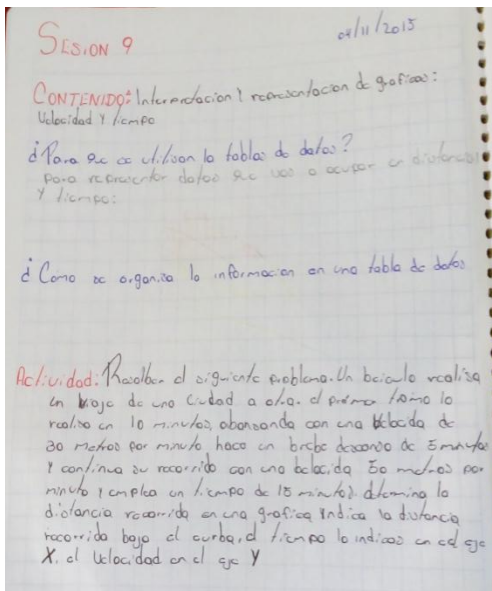 SESION 9
04/11/2015
CONTENIDO: Interpretacion Y representacion de graficas:
Velocidad Y tiempo
¿Para qe se utilisan la tablas de datos?
para representar datos qe vas a ocupar en distancias
Y tiempo.
¿Como se organisa la informacion en una tabla de datos
Actividad: Resolber el siguiente problema. Un beiculo realisa
un viaje de una Ciudad a otra. el primer tramo lo
realiso en 10 minutos, abansando con una belocida de
30 metros por minuto hace un brebe descanso de 5 minutos
Y continua su recorrido con una belocida 50 metros por
minuto Y emplea un tiempo de 15 minutos. determina la
distancia recorrida en una grafica Indica la distancia
recorrido bajo el curba, el tiempo lo indicas en el eje
X. el Velocidad en el eje Y